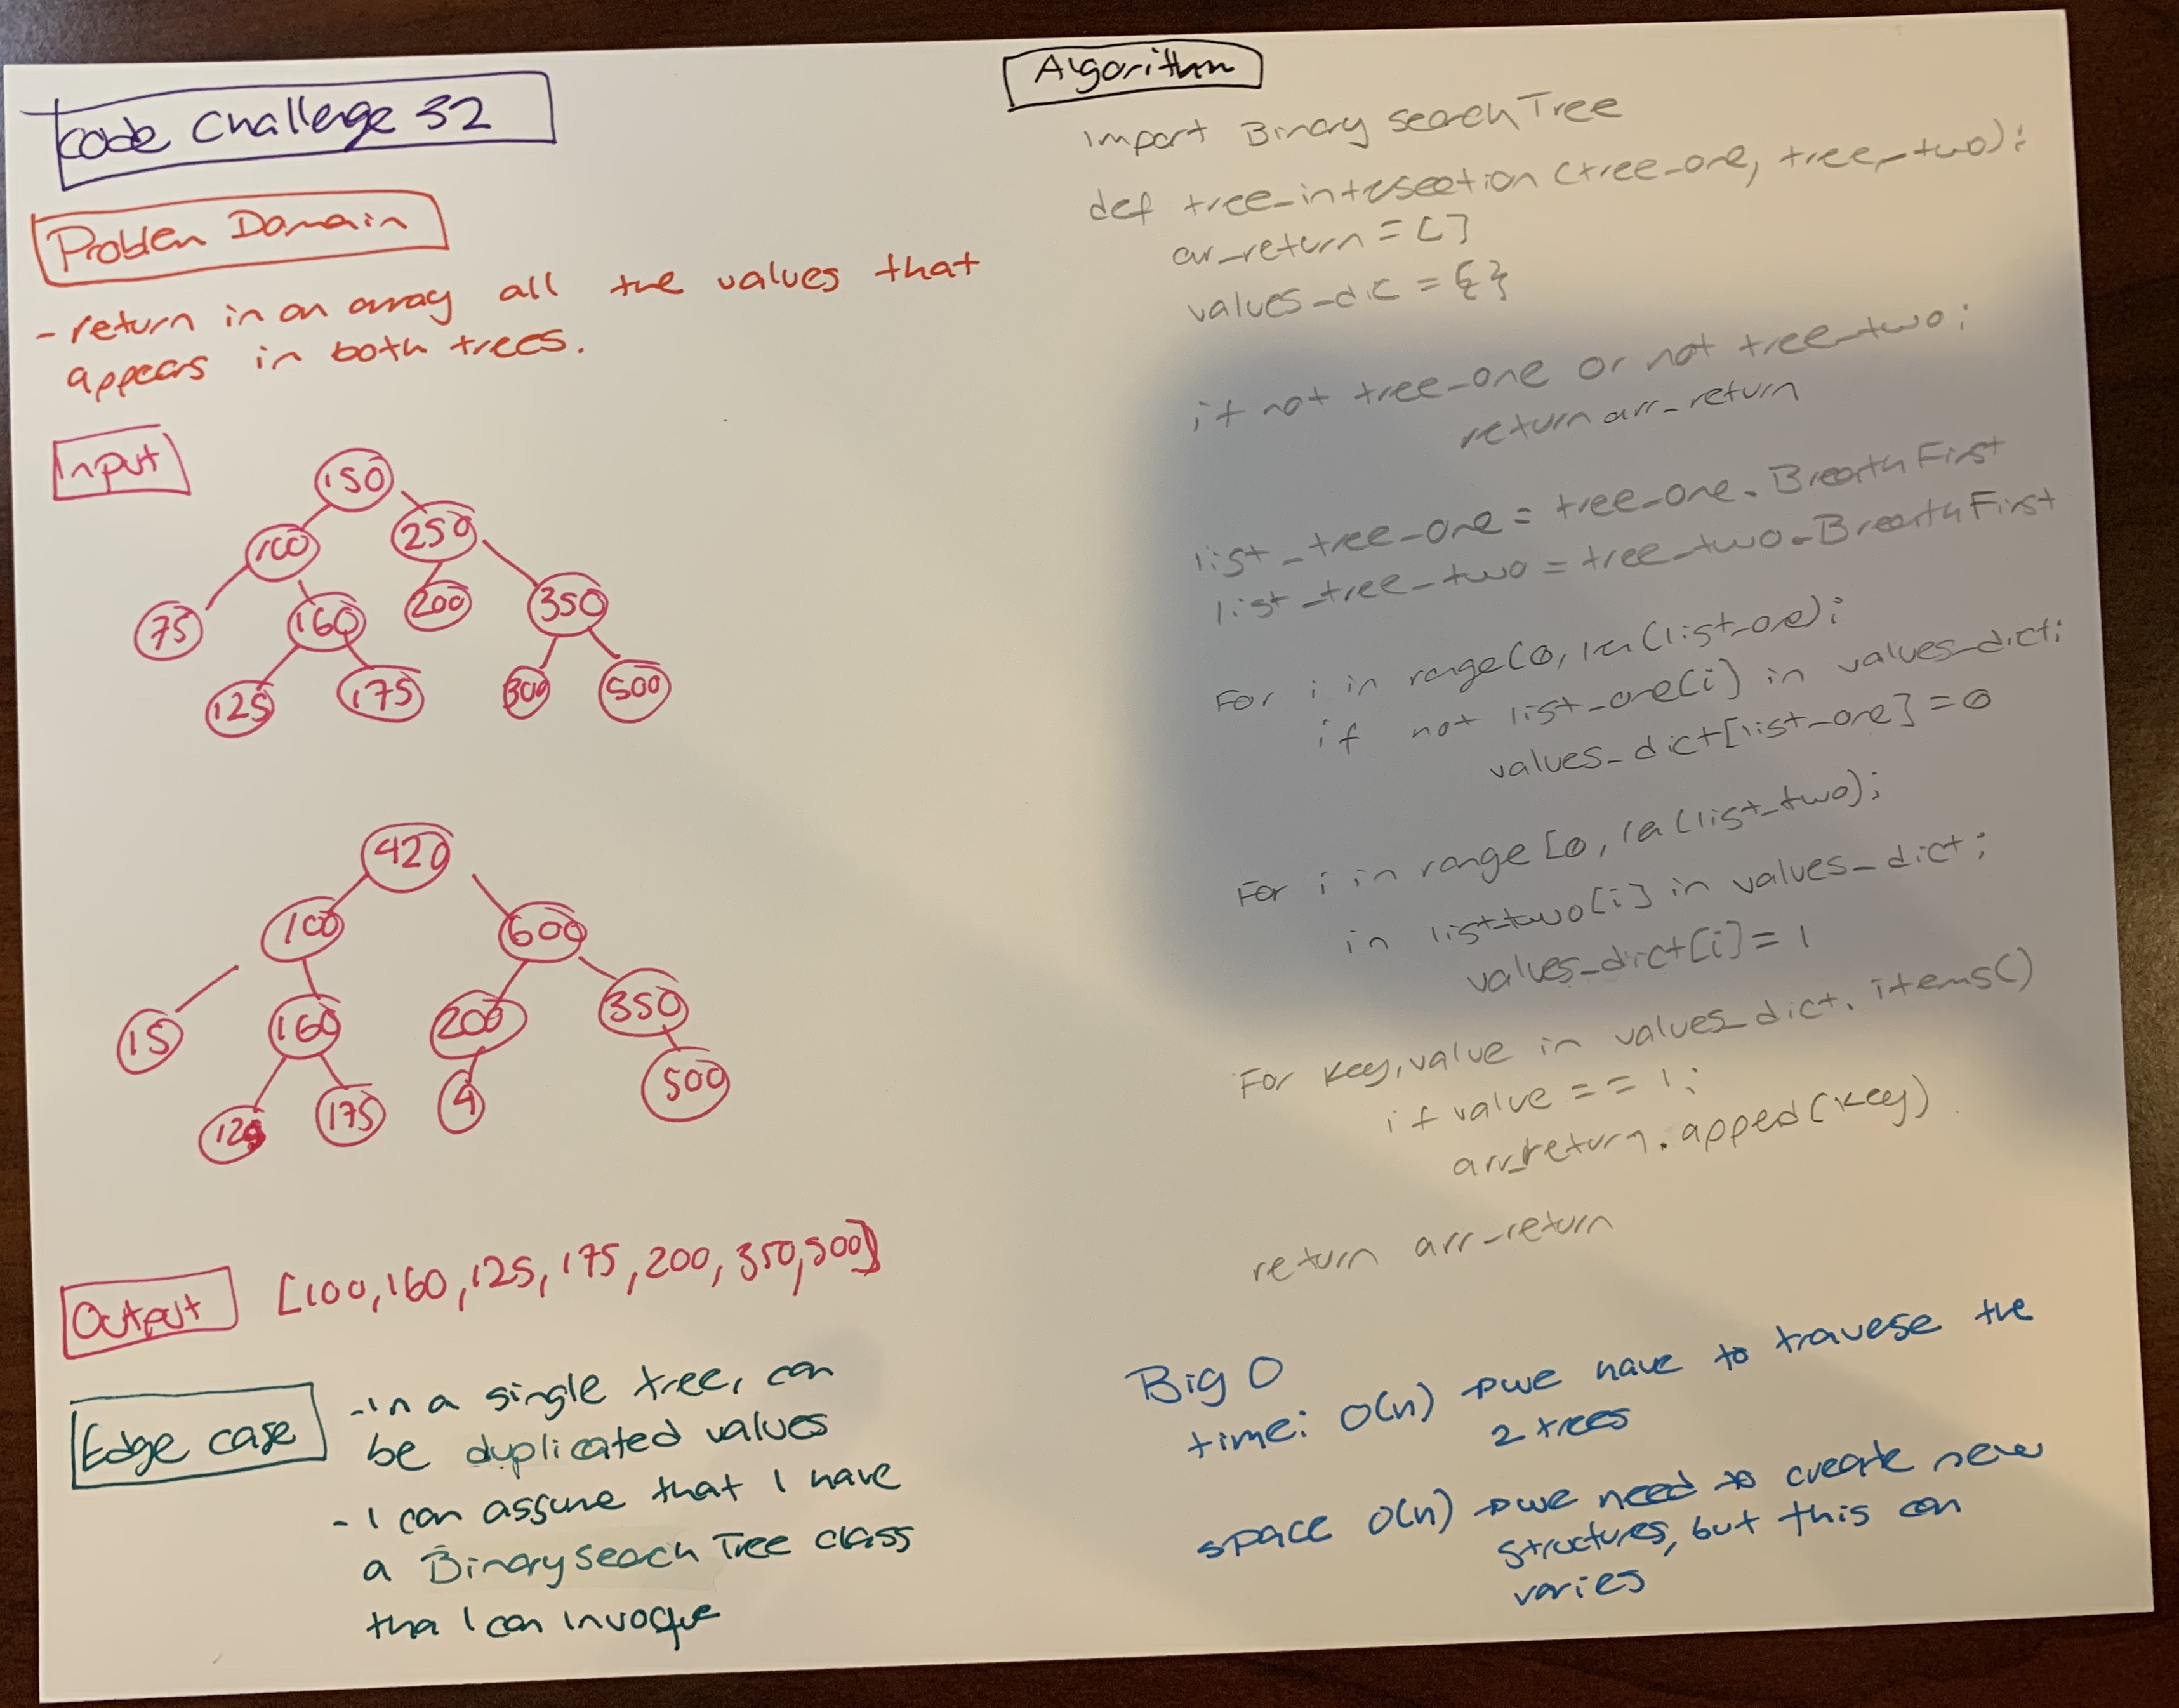 Code Challenge 32
Problem Domain
- return in an array all the values that
appears in both trees.
Input
150
100 250
75 160 200 350
125 175 300 500
420
100 600
15 160 200 350
125 175 4 500
Output [100,160,125,175,200,350,500]
Edge case
- in a single tree, can
be duplicated values
- I can assume that I have
a BinarySeach Tree class
tha I can invoque
Algorithm
import Binary SearchTree
def tree_intesection (tree_one, tree_two):
arr_return = []
values_dic = {}
if not tree_one or not tree_two:
return arr_return
list_tree_one = tree_one.BreathFirst
list_tree_two = tree_two.BreathFirst
For i in range(0, len(list_one):
if not list_one(i] in values_dict:
values_dict[list_one] = 0
For i in range[0, len(list_two);
in list_two[i] in values_dict;
values_dict[i] = 1
For key,value in values_dict.items()
if value == 1:
arr_return.apped(key)
return arr_return
Big O
time: O(n) → we have to travese the
2 trees
space O(n) → we need to create new
structures, but this can
varies